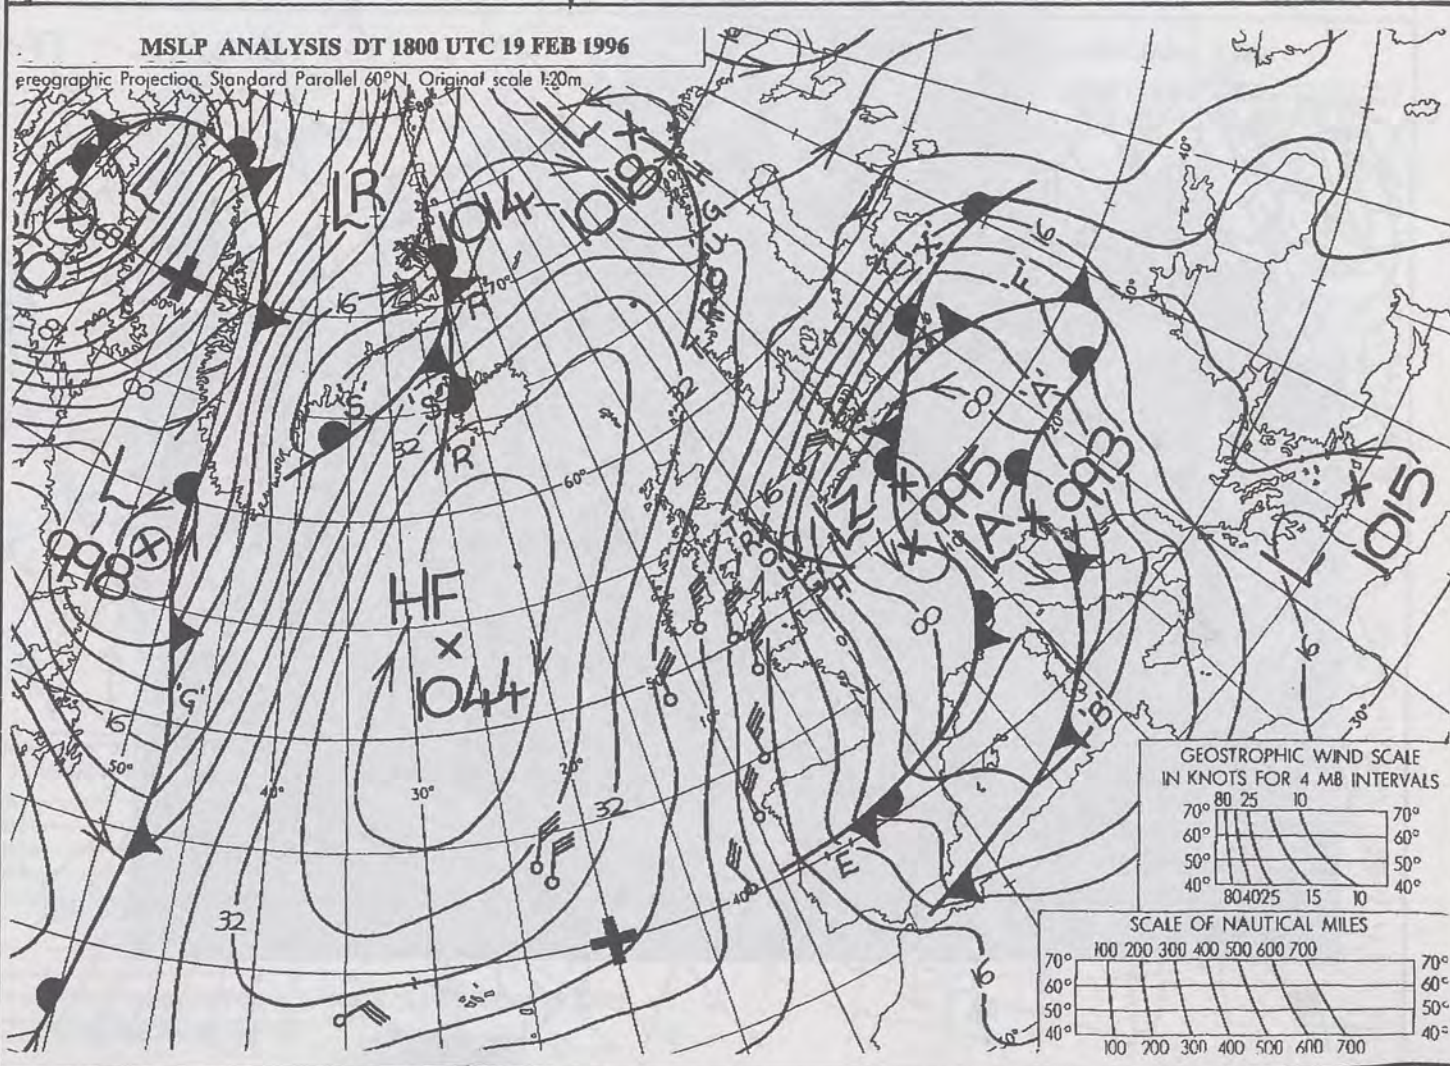 MSLP ANALYSIS DT 1800 UTC 19 FEB 1996
ereographic Projection. Standard Parallel 60°N, Original scale 1:20m
80°
L
LR
1014
1018
L
TROUGH
'X'
16
'F'
40°
60°
16
'R'
70°
'S'
'S'
32
'R'
32
8
'A'
20°
L
998
60°
16
LZ
995
LA
993
L
1015
HF
1044
TROUGH
8
16
'G'
16
50°
40°
30°
20°
32
50°
10°
0°
'B'
30°
'E'
32
40°
16
GEOSTROPHIC WIND SCALE
IN KNOTS FOR 4 MB INTERVALS
80 25 10
70° 70°
60° 60°
50° 50°
40° 40°
80 40 25 15 10
SCALE OF NAUTICAL MILES
100 200 300 400 500 600 700
70° 70°
60° 60°
50° 50°
40° 40°
100 200 300 400 500 600 700